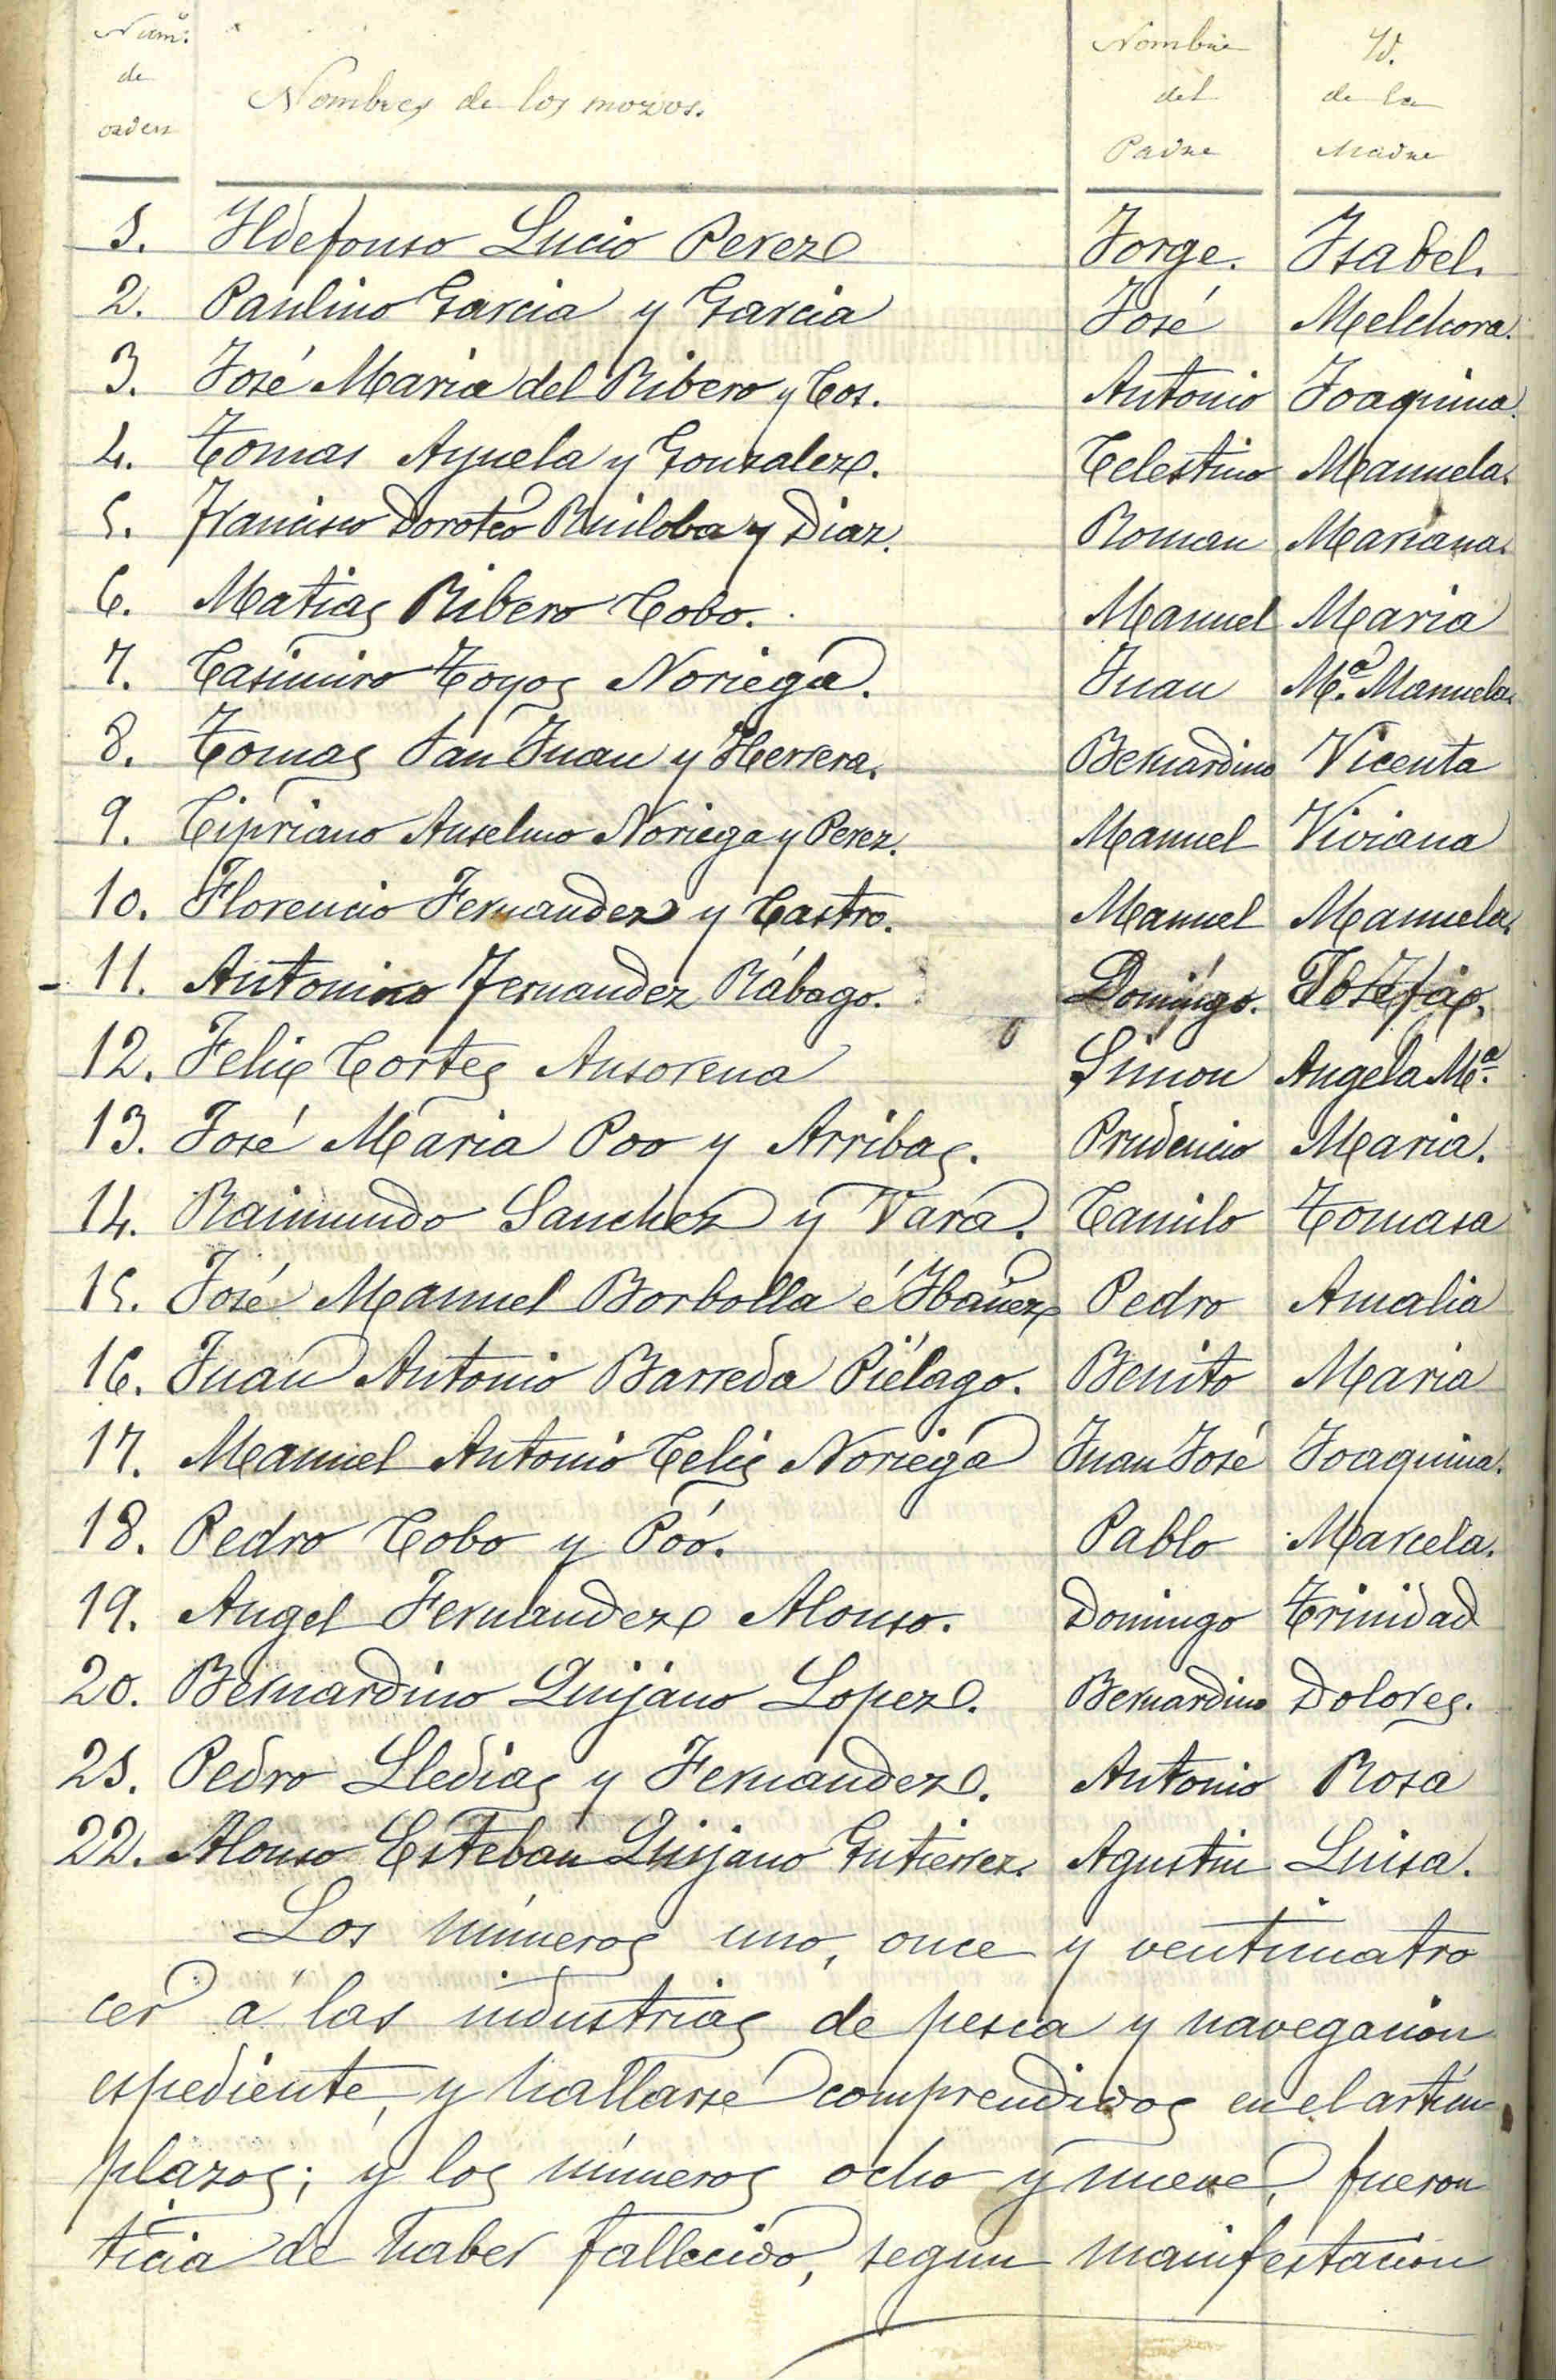 Núm.º de orden Nombres de los mozos. Nombre del Padre Yd. de la Madre
1. Yldefonso Lucio Perez Jorge. Ysabel.
2. Paulino Garcia y Garcia José Melchora.
3. José Maria del Ribero y Cos. Antonio Joaquina.
4. Tomas Ayuela y Gonzalez. Celestino Manuela.
5. Francisco Doroteo Ruiloba y Diaz. Roman Mariana.
6. Matias Ribero Cobo. Manuel Maria
7. Casimiro Toyos Noriega. Juan M.ª Manuela.
8. Tomas San Juan y Herrera. Bernardino Vicenta
9. Cipriano Anselmo Noriega y Perez. Manuel Viviana
10. Florencio Fernandez y Castro. Manuel Manuela.
11. Antonino Fernandez Rábago. Domingo. Josefa.
12. Felix Cortes Ansorena Simon Angela M.ª
13. José Maria Poo y Arribas. Prudencio Maria.
14. Raimundo Sanchez y Vara. Camilo Tomasa
15. José Manuel Borbolla é Ybañez Pedro Amalia
16. Juan Antonio Barreda Piélago. Benito Maria
17. Manuel Antonio Celis Noriega Juan José Joaquina.
18. Pedro Cobo y Póo. Pablo Marcela.
19. Angel Fernandez Alonso. Domingo Trinidad
20. Bernardino Quijano Lopez. Bernardino Dolores.
21. Pedro Lledias y Fernandez. Antonio Rosa
22. Alonso Esteban Quijano Gutierrez. Agustin Luisa.
Los números uno, once y venticuatro
cer á las industrias de pesca y navegacion
espediente, y hallarse comprendidos en el artícu
plazos; y los números ocho y nueve, fueron
ticia de haber fallecido, segun manifestacion